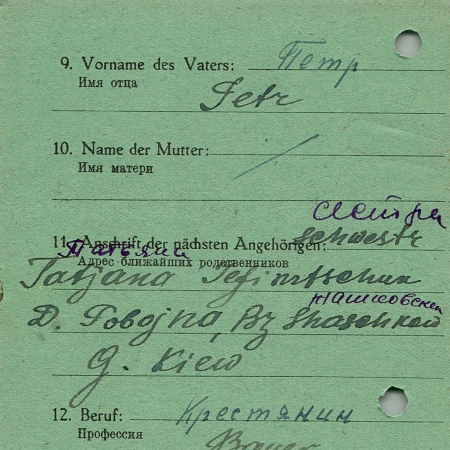 9. Vorname des Vaters: Петр
Имя отца
Petr
10. Name der Mutter: /
Имя матери
сестра
11. Anschrift der nächsten Angehörigen: Schwestr
Татьяна
Адрес ближайших родственников
Tatjana
Ташковский
D. Pobojna, Bz Thaschkow
G. Kiew
12. Beruf: Крестянин
Профессия